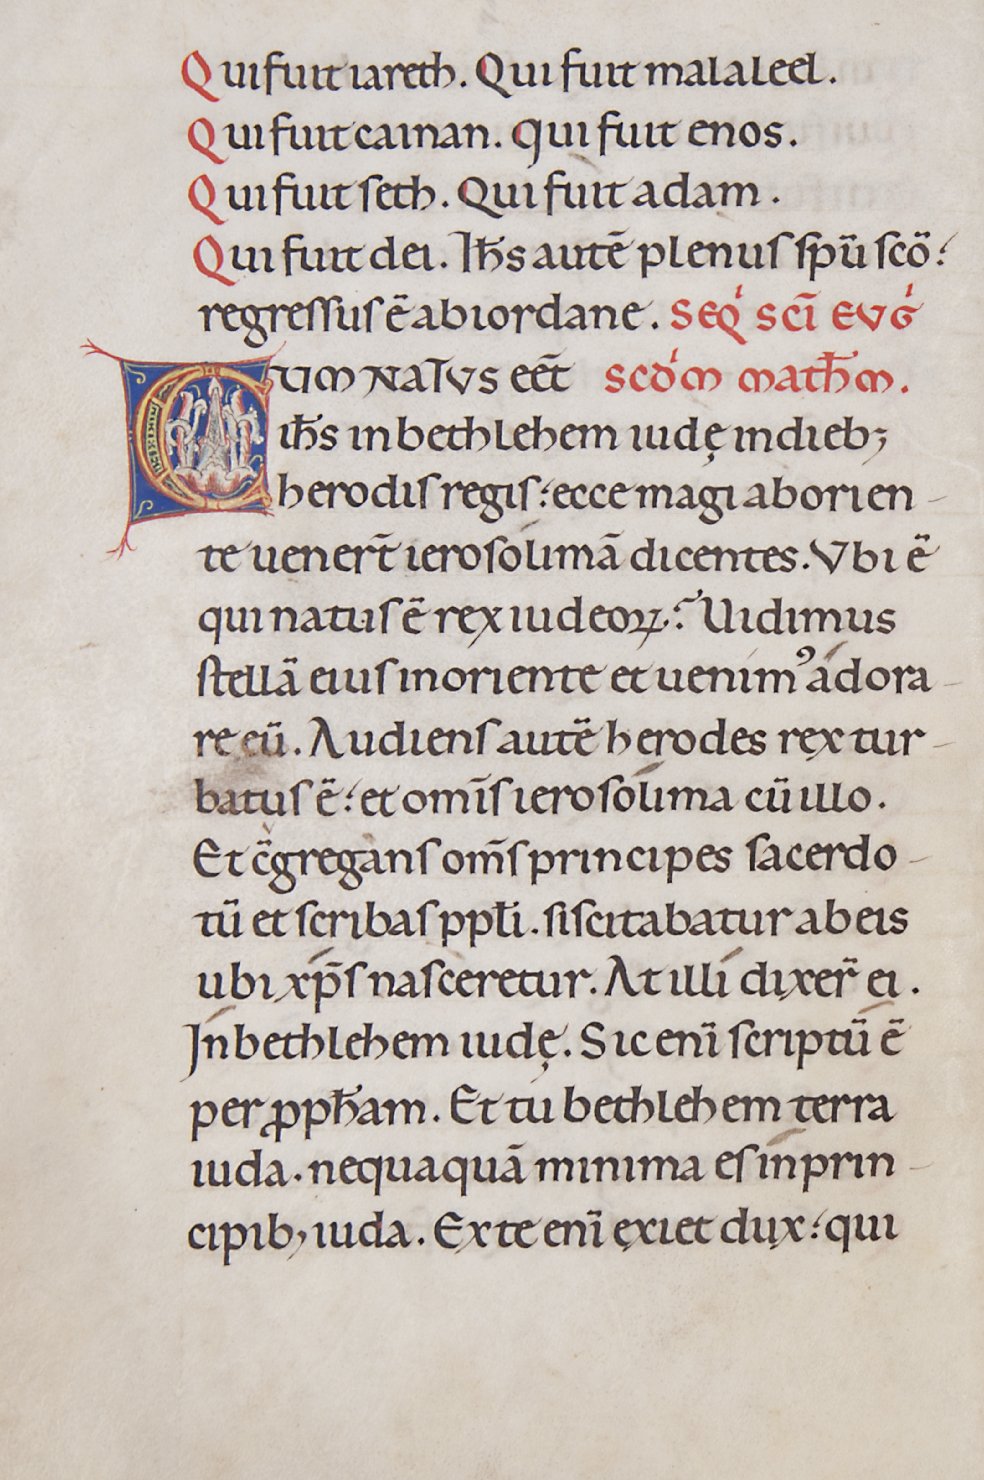 Qui fuit iareth. Qui fuit malaleel.
Qui fuit cainan. Qui fuit enos.
Qui fuit seth. Qui fuit adam.
Qui fuit dei. Ih̄s autē plenus sp̄u scō:
regressus ē ab iordane. SEQ̇ SCĪ EVĠ
CUM NATUS eēt SCDM MATH̄M.
ih̄s in bethlehem iudę in dieb;
herodis regis: ecce magi ab orien-
te uenerт̄ ierosolimā dicentes. Vbi ē
qui natus ē rex iudeoꝝ? Uidimus
stellā eius in oriente et uenimꝰ adora-
re eū. Audiens autē herodes rex tur-
batus ē: et om̄is ierosolima cū illo.
Et c̄gregans om̄s principes sacerdo-
tū et scribas ppłi. siscitabatur ab eis
ubi xp̄s nasceretur. At illi dixer̄ ei.
In bethlehem iudę. Sic enī scriptū ē
per ꝓph̄am. Et tu bethlehem terra
iuda. nequaquā minima es in prin-
cipib; iuda. Ex te enī exiet dux: qui